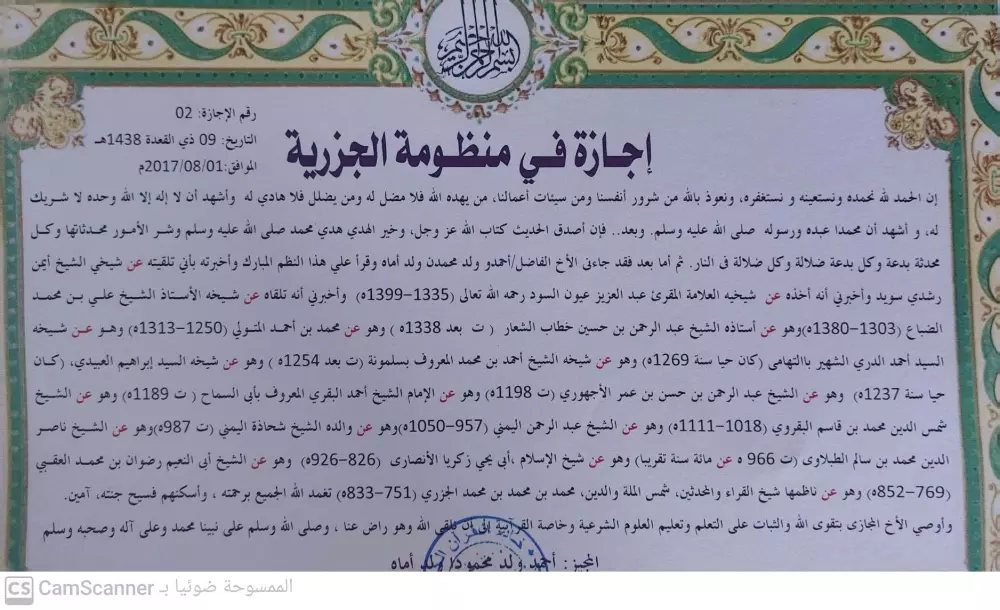 بسم الله الرحمن الرحيم
رقم الإجازة: 02
التاريخ: 09 ذي القعدة 1438هـ
الموافق:2017/08/01م
إجازة في منظومة الجزرية
إن الحمد لله نحمده ونستعينه و نستغفره، ونعوذ بالله من شرور أنفسنا ومن سيئات أعمالنا، من يهده الله فلا مضل له ومن يضلل فلا هادي له وأشهد أن لا إله إلا الله وحده لا شريك
له، و أشهد أن محمدا عبده ورسوله صلى الله عليه وسلم. وبعد.. فإن أصدق الحديث كتاب الله عز وجل، وخير الهدي هدي محمد صلى الله عليه وسلم وشر الأمور محدثاتها وكل
محدثة بدعة وكل بدعة ضلالة وكل ضلالة فى النار. ثم أما بعد فقد جاءنى الأخ الفاضل/أحمدو ولد محمدن ولد أماه وقرأ علي هذا النظم المبارك وأخبرته بأني تلقيته عن شيخي الشيخ أيمن
رشدي سويد وأخبرني أنه أخذه عن شيخيه العلامة المقرئ عبد العزيز عيون السود رحمه الله تعالى (1335–1399ه) وأخبرني أنه تلقاه عن شيخه الأستاذ الشيخ علي بن محمد
الضباع (1303–1380ه)وهو عن أستاذه الشيخ عبد الرحمن بن حسين خطاب الشعار ( ت بعد 1338ه ) وهو عن محمد بن أحمد المتولي (1250–1313ه) وهو عن شيخه
السيد أحمد الدري الشهير باالتهامى (كان حيا سنة 1269ه) وهو عن شيخه الشيخ أحمد بن محمد المعروف بسلمونة (ت بعد 1254ه ) وهو عن شيخه السيد إبراهيم العبيدي، (كان
حيا سنة 1237ه) وهو عن الشيخ عبد الرحمن بن حسن بن عمر الأجهوري (ت 1198ه) وهو عن الإمام الشيخ أحمد البقري المعروف بأبى السماح ( ت 1189ه) وهو عن الشيخ
شمس الدين محمد بن قاسم البقروي (1018–1111ه) وهو عن الشيخ عبد الرحمن اليمني (957–1050ه)وهو عن والده الشيخ شحاذة اليمني (ت 987ه)وهو عن الشيخ ناصر
الدين محمد بن سالم الطبلاوى (ت 966 ه عن مائة سنة تقريبا) وهو عن شيخ الإسلام ،أبى يحي زكريا الأنصارى (826–926ه) وهو عن الشيخ أبى النعيم رضوان بن محمد العقبي
(769–852ه) وهو عن ناظمها شيخ القراء والمحدثين، شمس الملة والدين، محمد بن محمد بن محمد الجزري (751–833ه) تغمد الله الجميع برحمته ، وأسكنهم فسيح جنته، آمين.
وأوصي الأخ المجازى بتقوى الله والثبات على التعلم وتعليم العلوم الشرعية وخاصة القرآنية إلى أن نلقى الله وهو راض عنا ، وصلى الله وسلم على نبينا محمد وعلى آله وصحبه وسلم
المجيز: أحمد ولد محمودا ولد أماه
CS CamScanner الممسوحة ضوئيا بـ